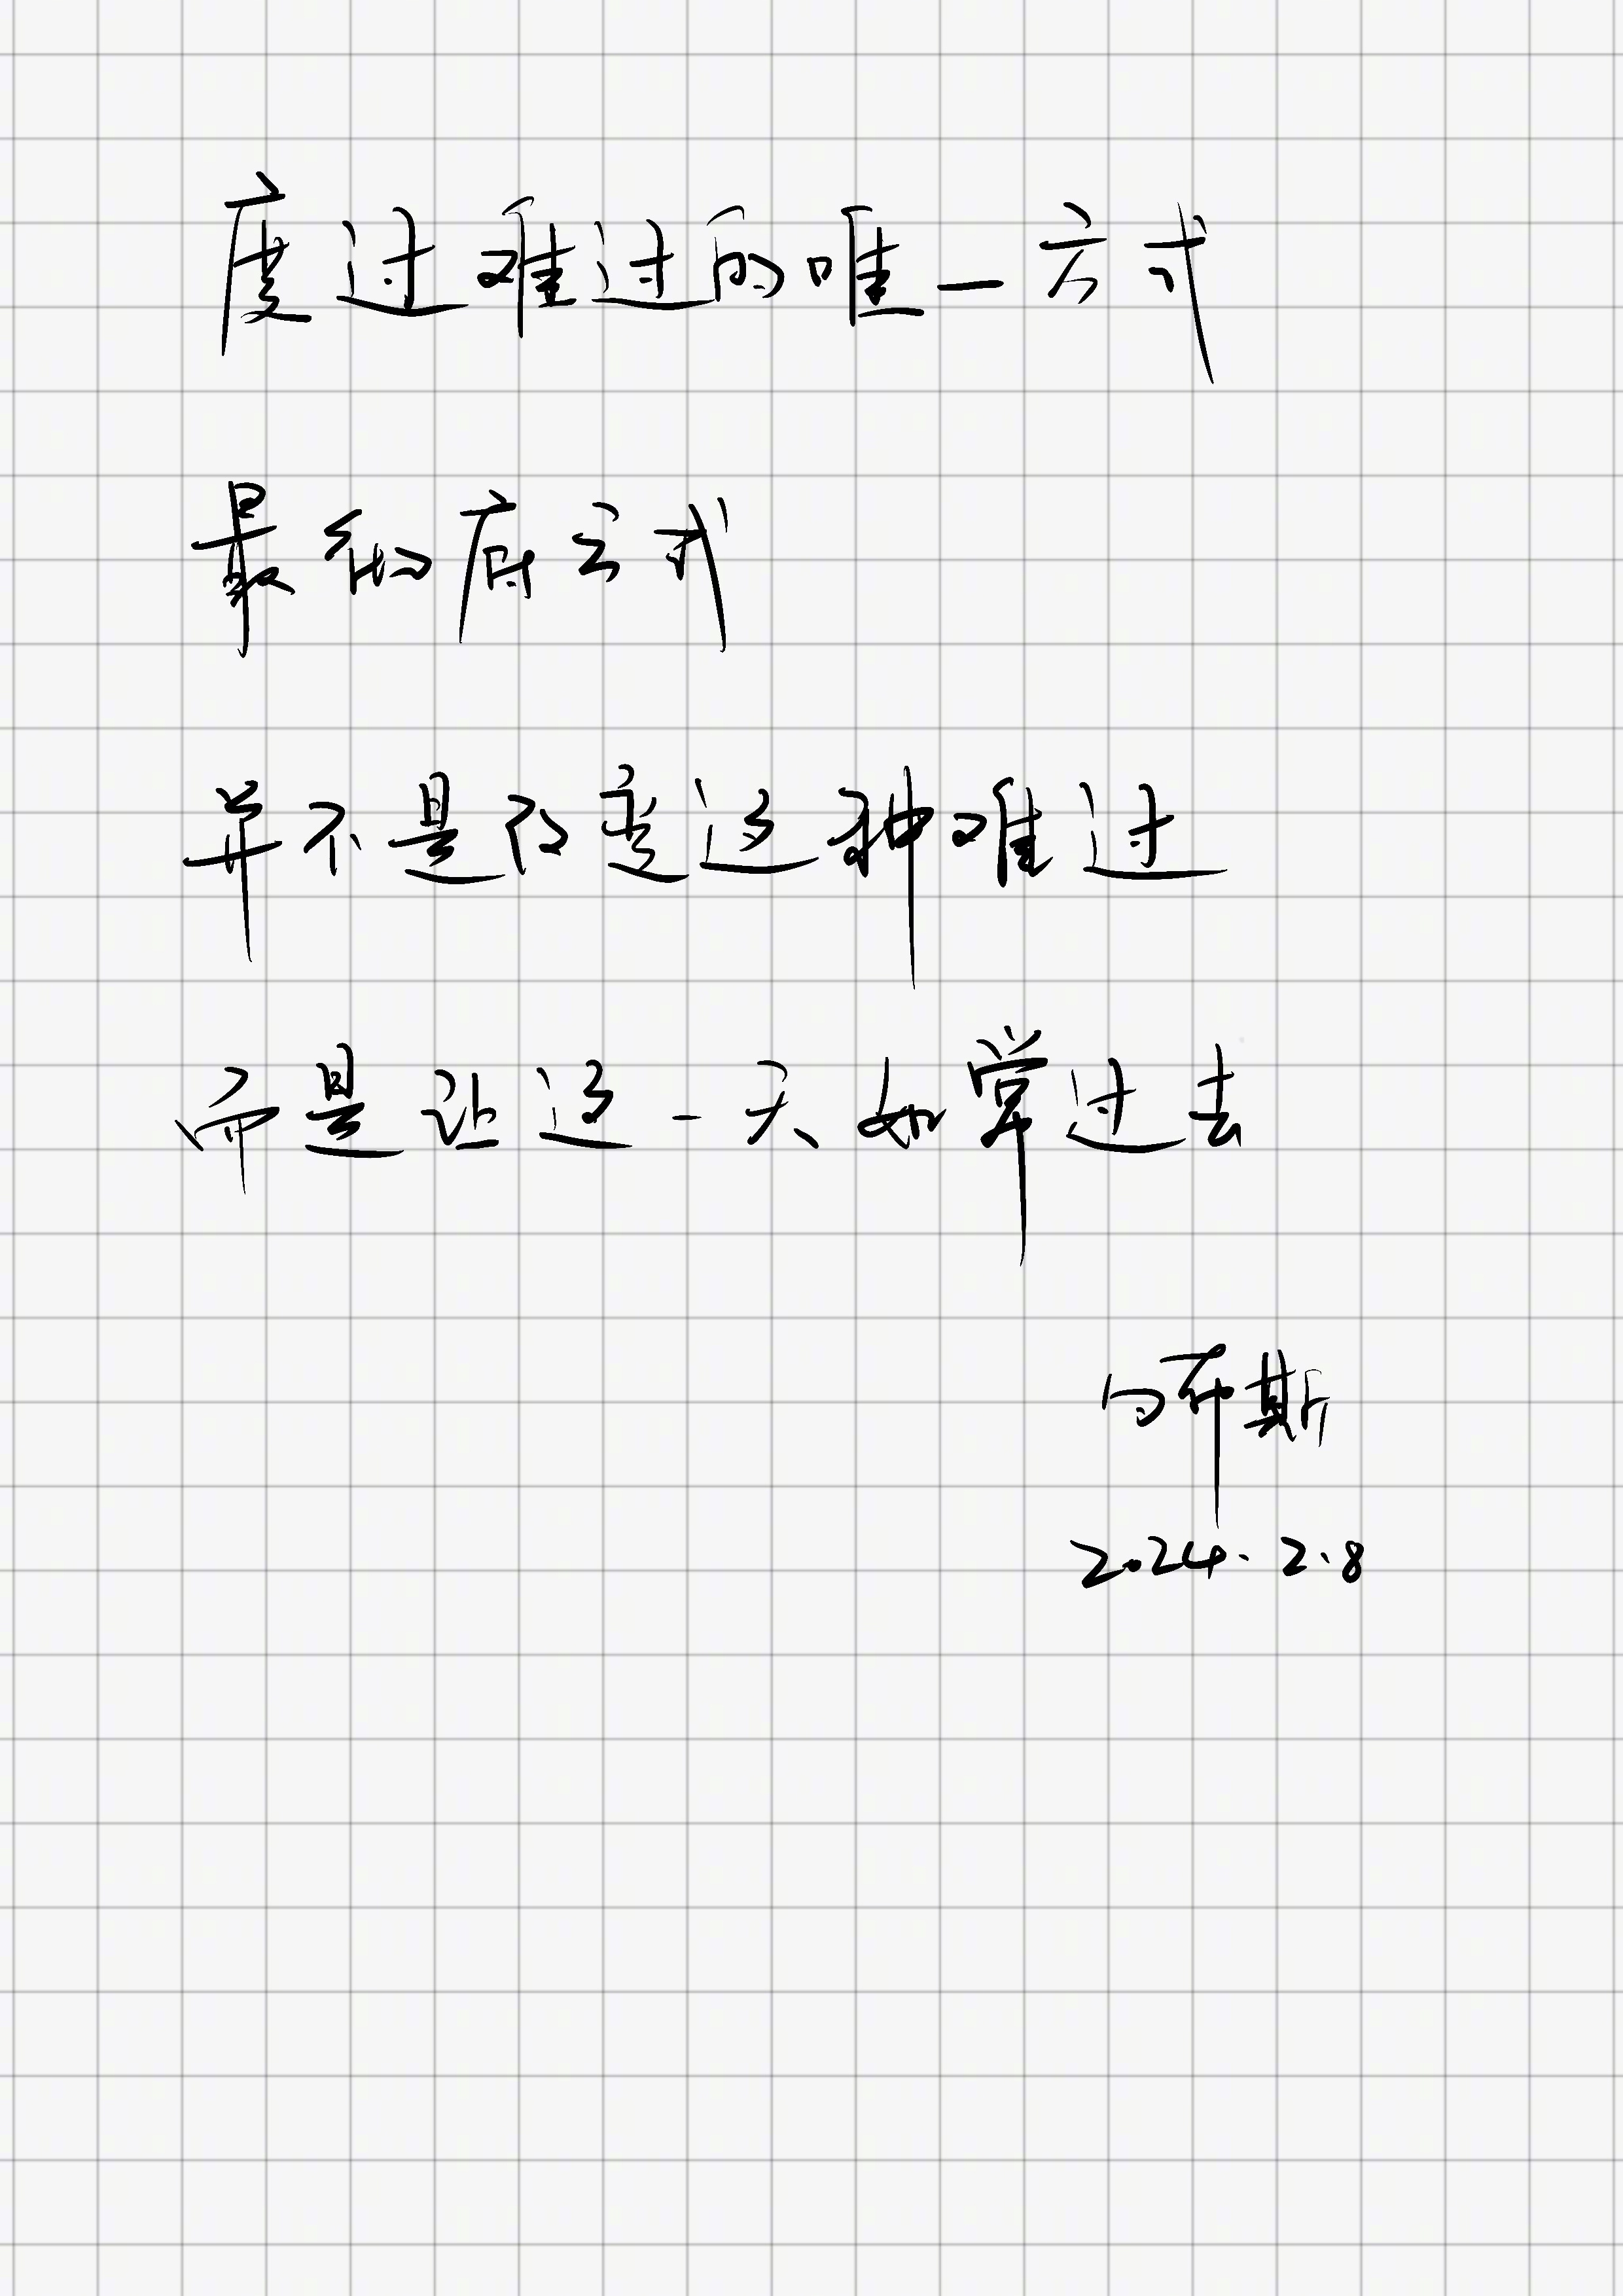 度过难过的唯一方式
最彻底方式
并不是改变这种难过
而是让这一天如常过去
向乔斯
2024.2.8